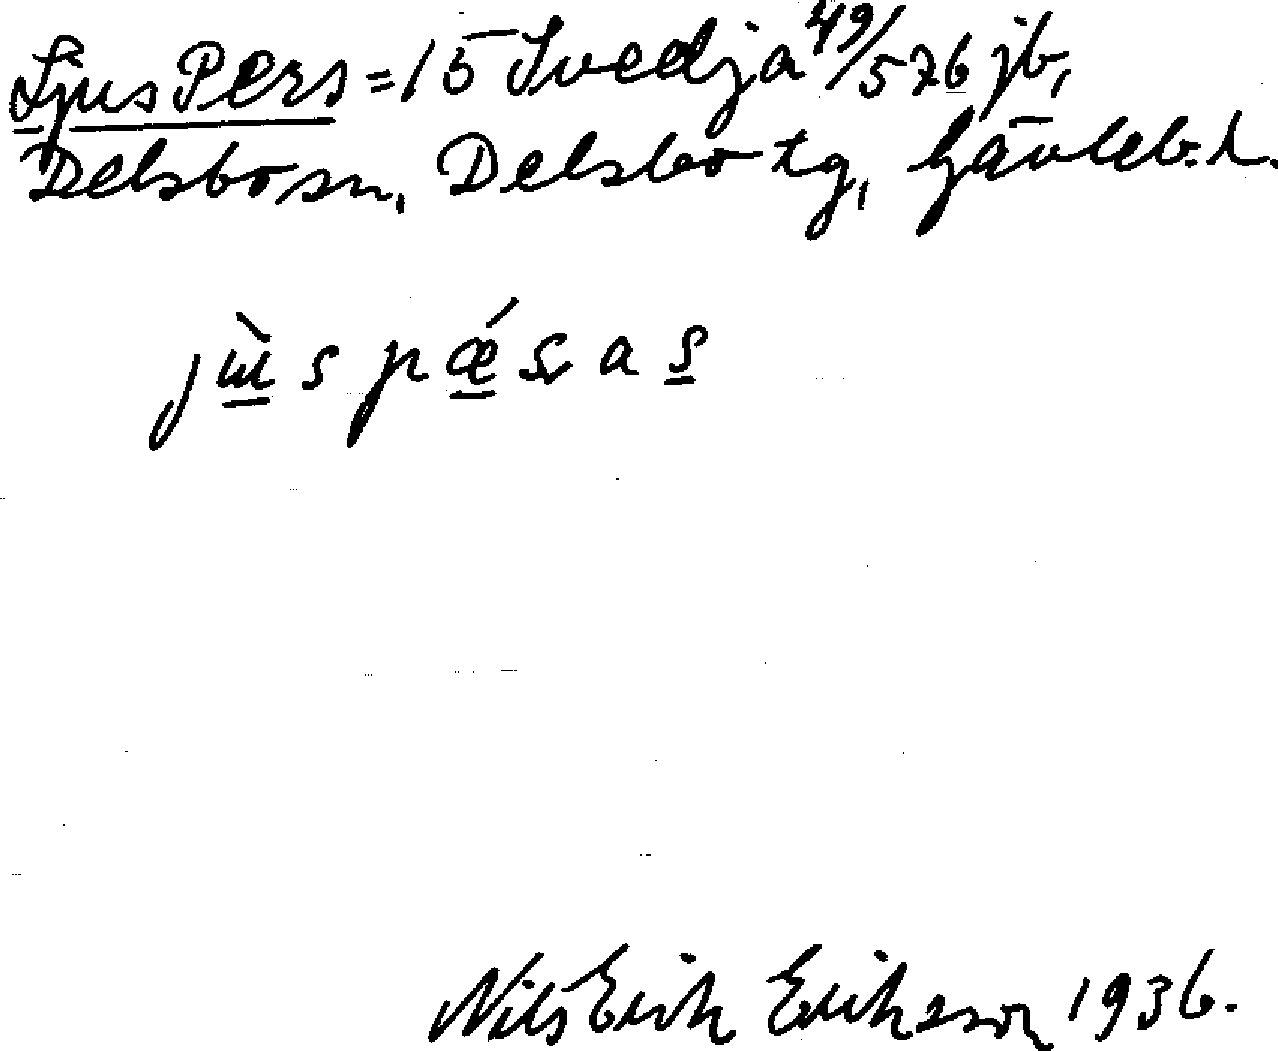 Ljus Pers = 15 Svedja 49/576 jb,
Delsbo sn, Delsbo tg, Gävleb. l.
jɯ̀s pǽsas
Nils Erik Erikson 1936.